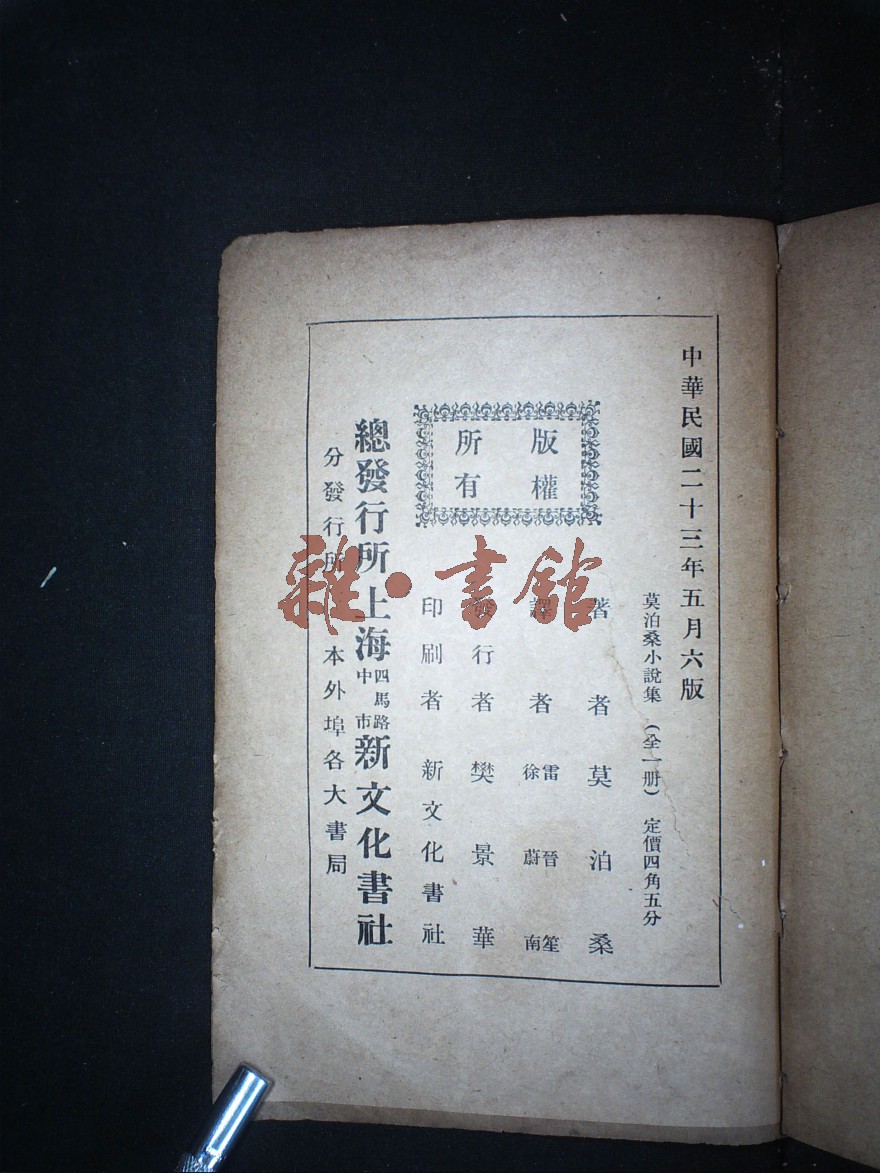 中華民國二十三年五月六版
莫泊桑小說集 (全一册) 定價四角五分
版權
所有
著者 莫泊桑
譯者 雷晉笙
徐蔚南
發行者 樊景華
印刷者 新文化書社
總發行所 上海 四馬路中市 新文化書社
分發行所 本外埠各大書局
雜·書館